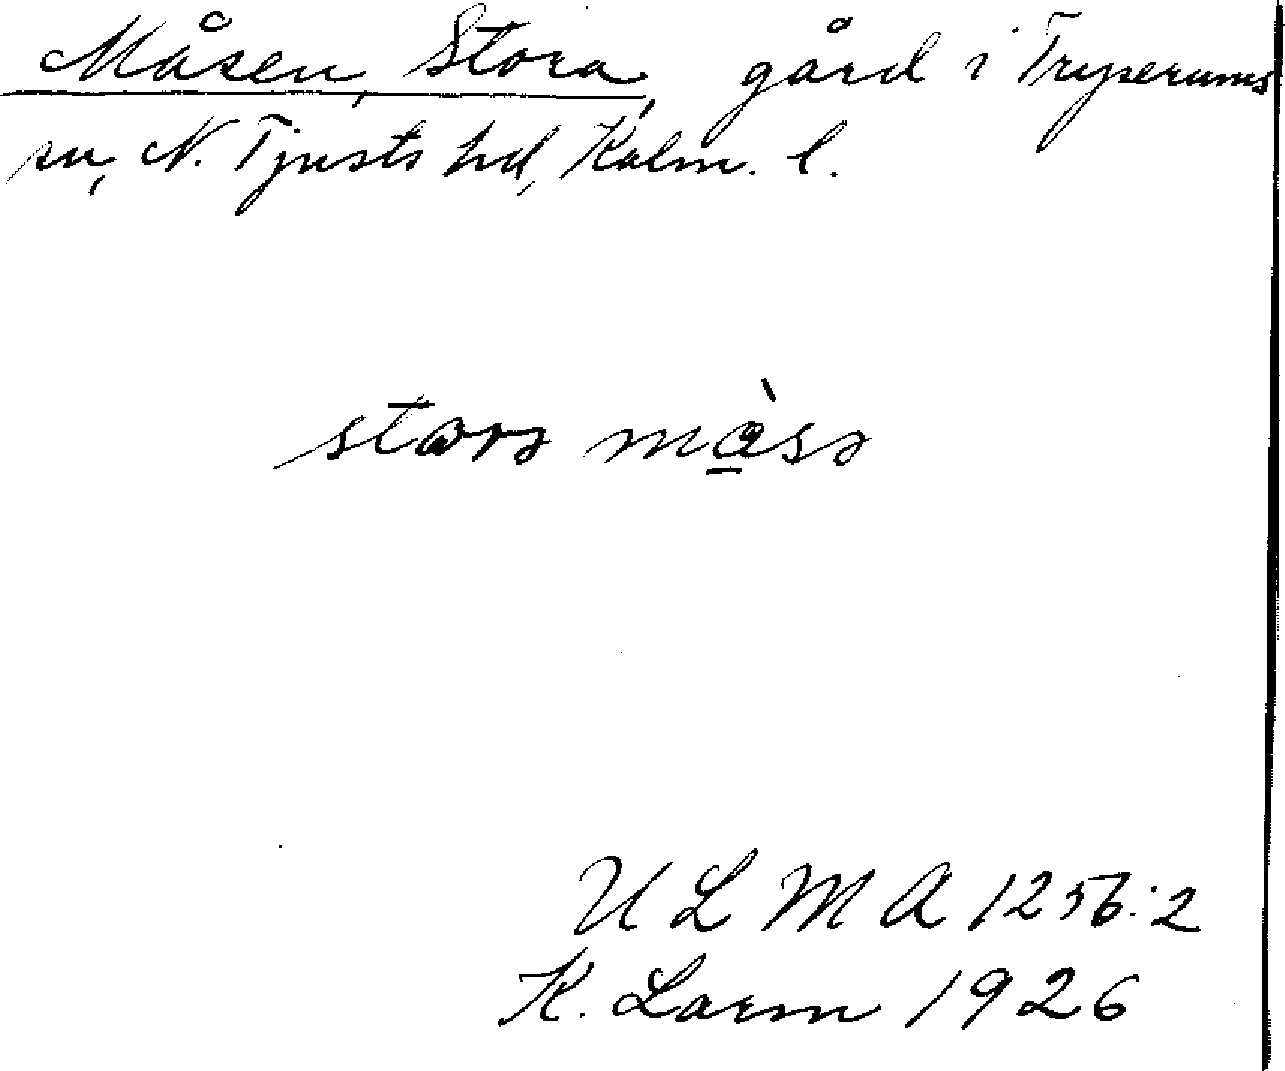 Måsen, Stora, gård i Tryserums
sn, N. Tjusts hd, Kalm. l.
U L M A 1256:2
K. Larm 1926